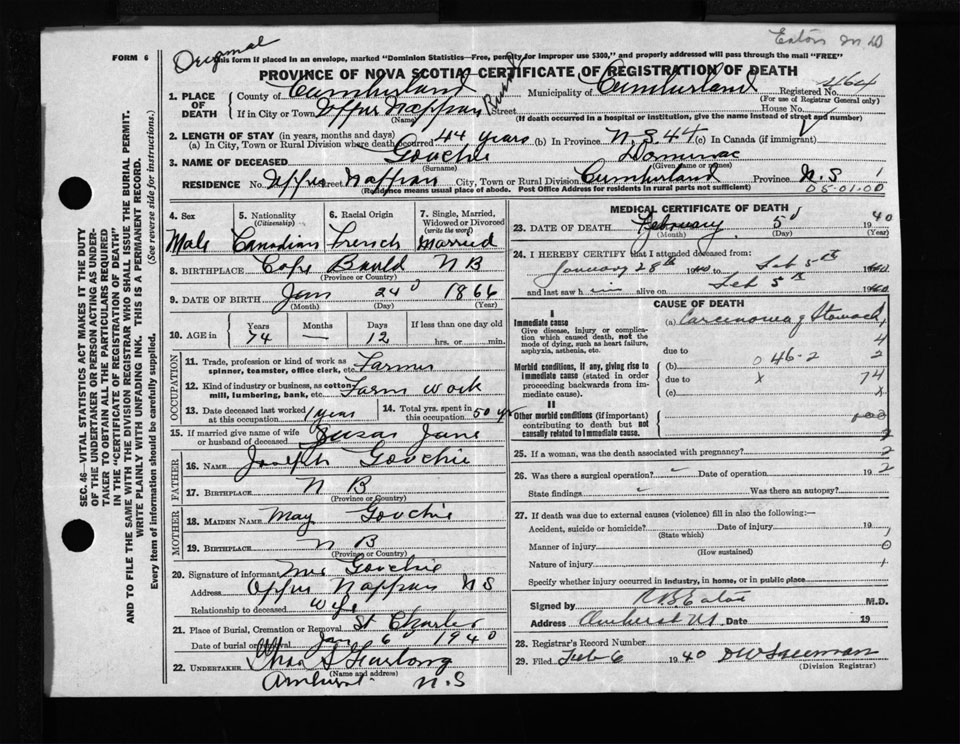 Eaton M D
Original
FORM 6
This form if placed in an envelope, marked "Dominion Statistics—Free, penalty for improper use $300," and properly addressed will pass through the mail "FREE"
PROVINCE OF NOVA SCOTIA—CERTIFICATE OF REGISTRATION OF DEATH
1. PLACE OF DEATH
County of Cumberland Municipality of Cumberland Registered No. 4164
(For use of Registrar General only)
If in City or Town Upper Nappan Rural Street House No.
(Name) (If death occurred in a hospital or institution, give the name instead of street and number)
2. LENGTH OF STAY (in years, months and days)
(a) In City, Town or Rural Division where death occurred 44 years (b) In Province N S 44 (c) In Canada (if immigrant)
3. NAME OF DECEASED Gouchie
(Surname) (Given name or names)
RESIDENCE No. Upper Street Nappan City, Town or Rural Division Cumberland Province N.S 1
(Residence means usual place of abode. Post Office Address for residents in rural parts not sufficient) 05-01-00
4. Sex Male
5. Nationality (Citizenship) Canadian
6. Racial Origin French
7. Single, Married, Widowed or Divorced (write the word) Married
8. BIRTHPLACE Cape Bauld N B
(Province or Country)
9. DATE OF BIRTH Jan 24 1866
(Month) (Day) (Year)
10. AGE in Years 74 Months — Days 12 If less than one day old hrs. or min.
OCCUPATION
11. Trade, profession or kind of work as spinner, teamster, office clerk, etc. Farmer
12. Kind of industry or business, as cotton mill, lumbering, bank, etc. Farm work
13. Date deceased last worked at this occupation 1 year
14. Total yrs. spent in this occupation 50 yrs
15. If married give name of wife or husband of deceased Susan Jane
FATHER
16. NAME Joseph Gouchie
17. BIRTHPLACE N B
(Province or Country)
MOTHER
18. MAIDEN NAME May Gouchie
19. BIRTHPLACE N B
(Province or Country)
20. Signature of informant Mrs Gouchie
Address Upper Nappan N S
Relationship to deceased Wife
21. Place of Burial, Cremation or Removal St Charles
Date of burial or removal Jan 6 1940
22. UNDERTAKER Chas S Furlong
(Name and address)
Amherst N.S
MEDICAL CERTIFICATE OF DEATH
23. DATE OF DEATH February 5 1940
(Month) (Day) (Year)
24. I HEREBY CERTIFY that I attended deceased from:
January 28th 1940 to Feb 5th 1940
and last saw him alive on Feb 5th 1940
CAUSE OF DEATH
I
Immediate cause (a) Carcinoma of Stomach
Give disease, injury or complication which caused death, not the mode of dying, such as heart failure, asphyxia, asthenia, etc. 4
due to 2
(b) 046-2
Morbid conditions, if any, giving rise to immediate cause (stated in order proceeding backwards from immediate cause).
due to x 74
(c) x
II
Other morbid conditions (if important) contributing to death but not causally related to immediate cause.
25. If a woman, was the death associated with pregnancy? 2
26. Was there a surgical operation? Date of operation 19 2
State findings Was there an autopsy?
27. If death was due to external causes (violence) fill in also the following:—
Accident, suicide or homicide? Date of injury 19
(State which)
Manner of injury 0
(How sustained)
Nature of injury 1
Specify whether injury occurred in industry, in home, or in public place
Signed by R B Eaton M.D.
Address Amherst NS Date 19
28. Registrar's Record Number
29. Filed Feb 6 1940
(Division Registrar)
SEC. 46—VITAL STATISTICS ACT MAKES IT THE DUTY
OF THE UNDERTAKER OR PERSON ACTING AS UNDER-
TAKER TO OBTAIN ALL THE PARTICULARS REQUIRED
IN THE "CERTIFICATE OF REGISTRATION OF DEATH"
AND TO FILE THE SAME WITH THE DIVISION REGISTRAR WHO SHALL ISSUE THE BURIAL PERMIT.
WRITE PLAINLY WITH UNFADING INK. THIS IS A PERMANENT RECORD.
Every item of information should be carefully supplied. (See reverse side for instructions.)